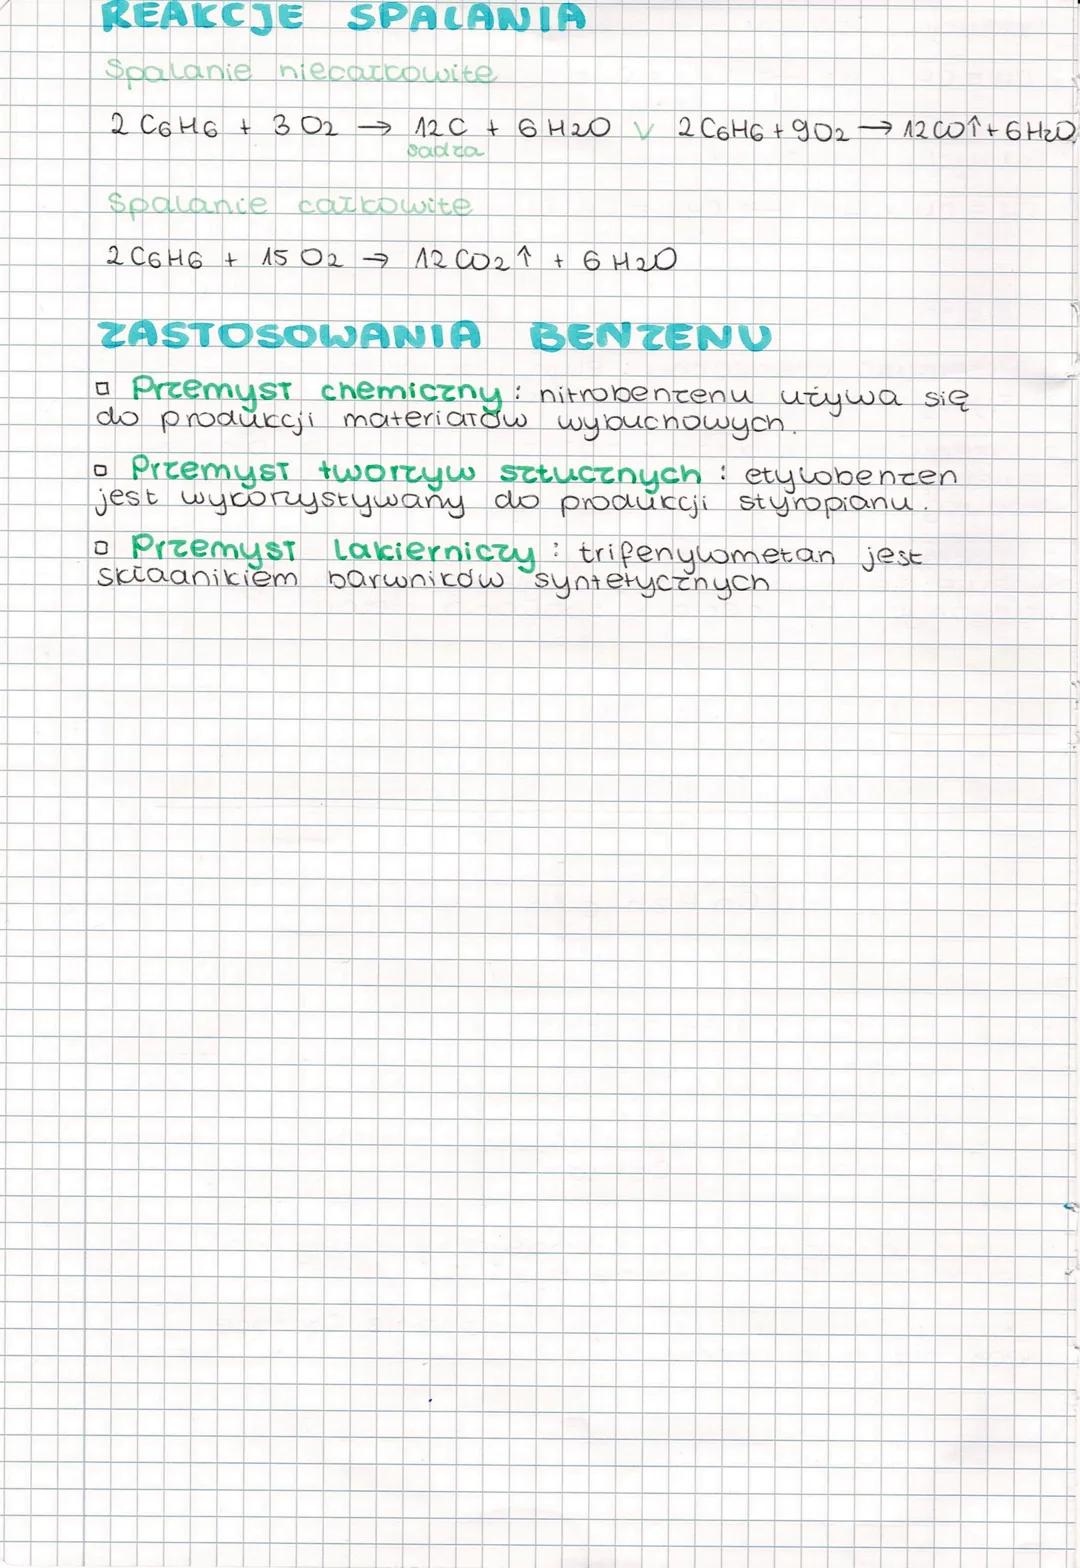 REAKCJE SPALANIA
Spalanie niecałkowite
2 C6H6 + 3 O2 → 12 C + 6 H2O ∨ 2 C6H6 + 9 O2 → 12 CO↑ + 6 H2O
sadza
Spalanie całkowite
2 C6H6 + 15 O2 → 12 CO2↑ + 6 H2O
ZASTOSOWANIA BENZENU
▫ Przemysł chemiczny : nitrobenzenu używa się
do produkcji materiałów wybuchowych.
▫ Przemysł tworzyw sztucznych : etylobenzen
jest wykorzystywany do produkcji styropianu.
▫ Przemysł lakierniczy : trifenylometan jest
składnikiem barwników syntetycznych